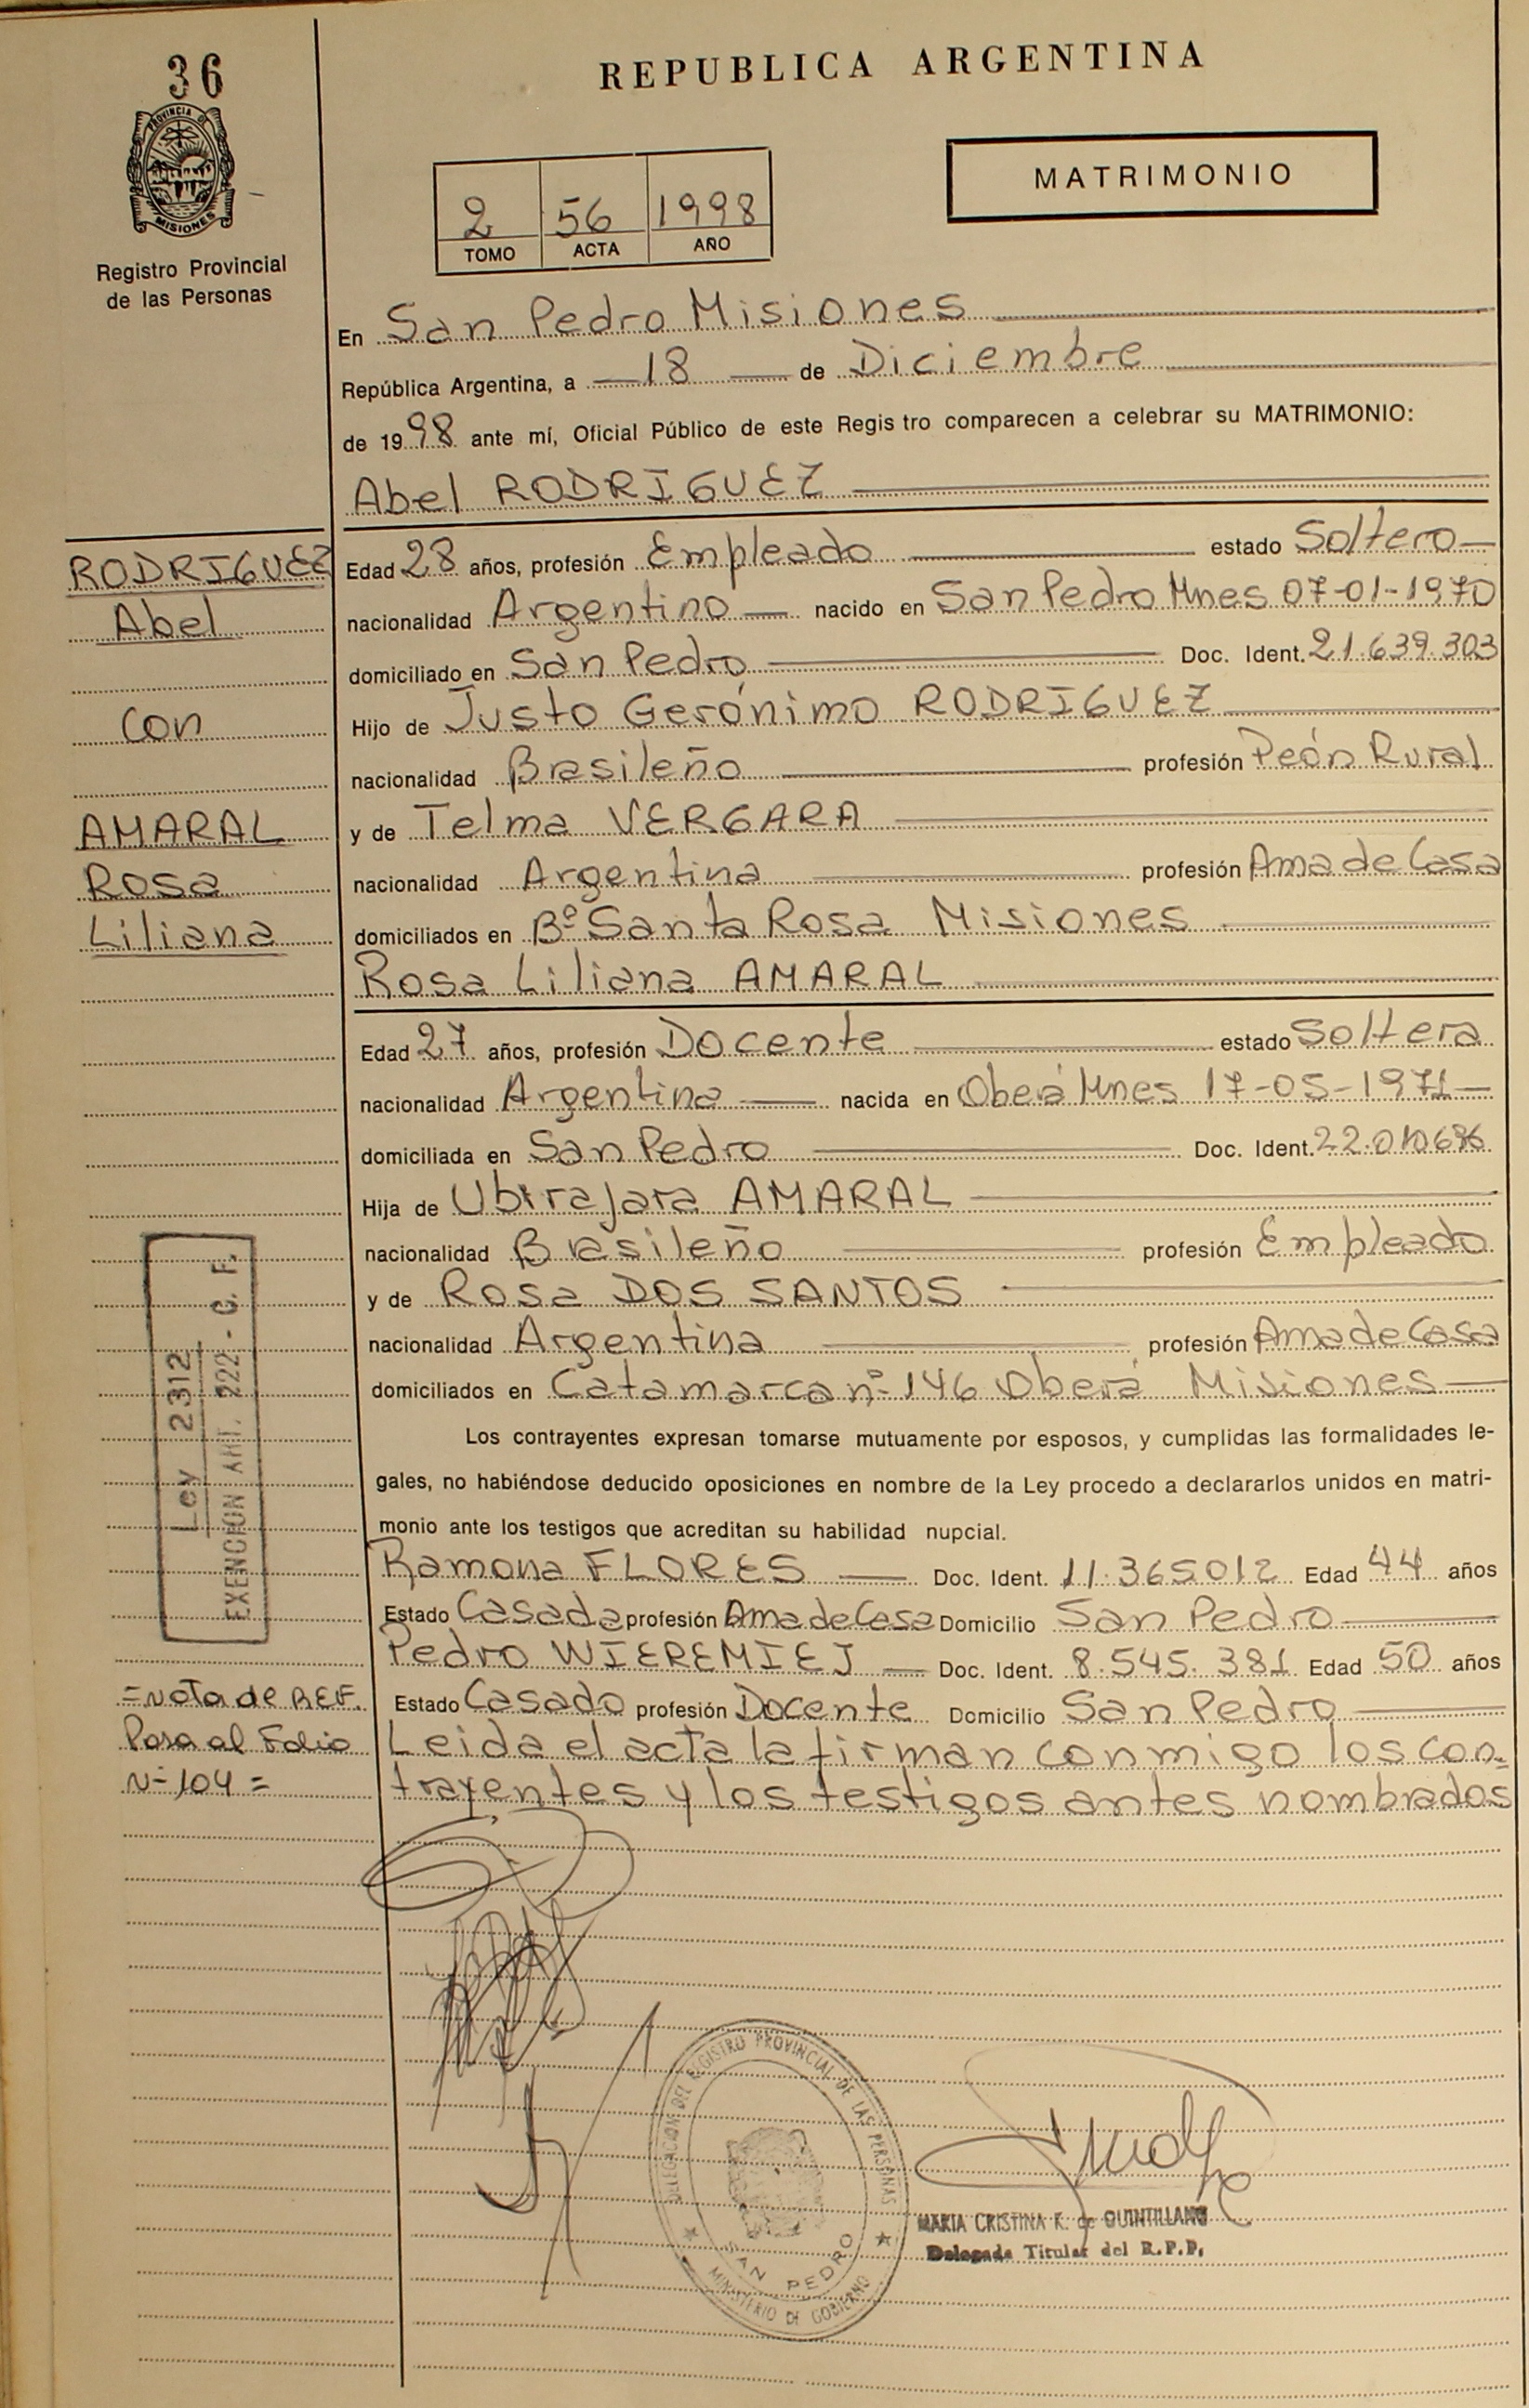 36
REPUBLICA ARGENTINA
PROVINCIA DE
MISIONES
Registro Provincial
de las Personas
2 56 1998
TOMO ACTA AÑO
MATRIMONIO
En San Pedro Misiones
República Argentina, a 18 de Diciembre
de 1998 ante mí, Oficial Público de este Regis tro comparecen a celebrar su MATRIMONIO:
Abel RODRIGUEZ
RODRIGUEZ
Abel
con
AMARAL
Rosa
Liliana
Edad 28 años, profesión Empleado estado Soltero
nacionalidad Argentino nacido en San Pedro Mnes 07-01-1970
domiciliado en San Pedro Doc. Ident. 21.639.303
Hijo de Justo Gerónimo RODRIGUEZ
nacionalidad Brasileño profesión Peón Rural
y de Telma VERGARA
nacionalidad Argentina profesión Ama de Casa
domiciliados en Bº Santa Rosa Misiones
Rosa Liliana AMARAL
Edad 27 años, profesión Docente estado Soltera
nacionalidad Argentina nacida en Oberá Mnes 17-05-1971
domiciliada en San Pedro Doc. Ident.
Hija de Ubirajara AMARAL
nacionalidad Brasileño profesión Empleado
y de Rosa DOS SANTOS
nacionalidad Argentina profesión Ama de Casa
domiciliados en Catamarca nº 146 Oberá Misiones
Los contrayentes expresan tomarse mutuamente por esposos, y cumplidas las formalidades le-
gales, no habiéndose deducido oposiciones en nombre de la Ley procedo a declararlos unidos en matri-
monio ante los testigos que acreditan su habilidad nupcial.
Ramona FLORES Doc. Ident. 11.365012 Edad 44 años
Estado Casada profesión Ama de Casa Domicilio San Pedro
Pedro WIEREMIEJ Doc. Ident. 8.545.381 Edad 50 años
Estado Casado profesión Docente Domicilio San Pedro
Leida el acta la firman conmigo los con=
trayentes y los testigos antes nombrados
Ley 2312
EXENCION ART. 222 - C. F.
=Nota de REF.
Pasa al Folio
Nº 104=
DELEGACION DEL REGISTRO PROVINCIAL DE LAS PERSONAS
SAN PEDRO
MINISTERIO DE GOBIERNO
MARIA CRISTINA K. de QUINTILLANO
Delegada Titular del R.P.P.